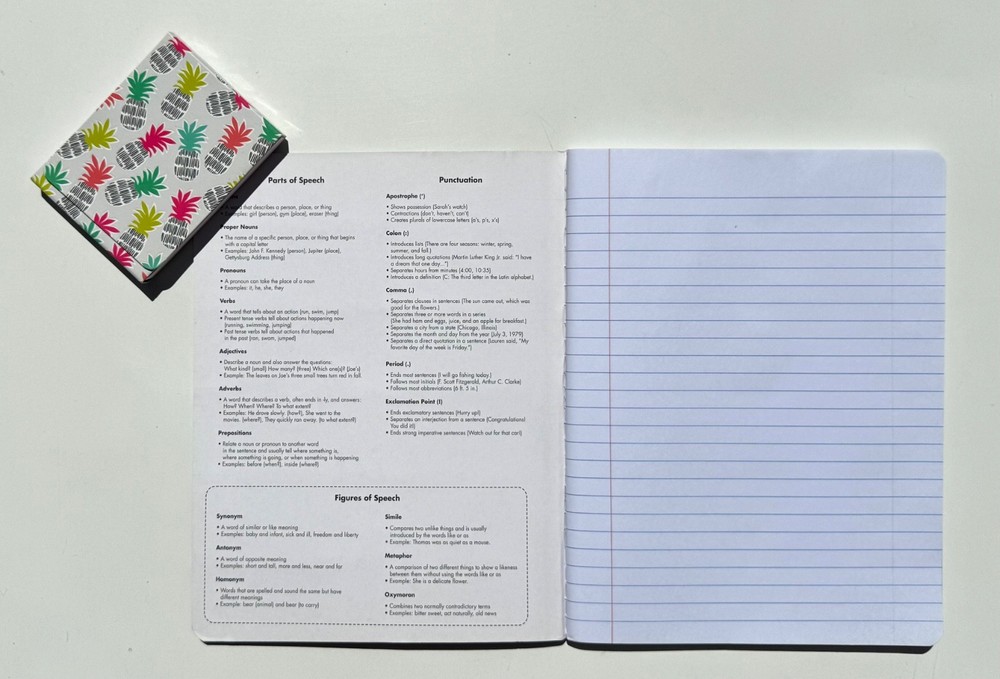 Parts of Speech
word that describes a person, place, or thing
Examples: girl (person), gym (place), eraser (thing)
Proper Nouns
• The name of a specific person, place, or thing that begins
with a capital letter
• Examples: John F. Kennedy (person), Jupiter (place),
Gettysburg Address (thing)
Pronouns
• A pronoun can take the place of a noun
• Examples: it, he, she, they
Verbs
• A word that tells about an action (run, swim, jump)
• Present tense verbs tell about actions happening now
(running, swimming, jumping)
• Past tense verbs tell about actions that happened
in the past (ran, swam, jumped)
Adjectives
• Describe a noun and also answer the questions:
What kind? (small) How many? (three) Which one(s)? (Joe's)
• Example: The leaves on Joe's three small trees turn red in fall.
Adverbs
• A word that describes a verb, often ends in -ly, and answers:
How? When? Where? To what extent?
• Examples: He drove slowly. (how?), She went to the
movies. (where?), They quickly ran away. (to what extent?)
Prepositions
• Relate a noun or pronoun to another word
in the sentence and usually tell where something is,
where something is going, or when something is happening
• Examples: before (when?), inside (where?)
Punctuation
Apostrophe (')
• Shows possession (Sarah's watch)
• Contractions (don't, haven't, can't)
• Creates plurals of lowercase letters (a's, p's, x's)
Colon (:)
• Introduces lists (There are four seasons: winter, spring,
summer, and fall.)
• Introduces long quotations (Martin Luther King Jr. said: "I have
a dream that one day...")
• Separates hours from minutes (4:00, 10:35)
• Introduces a definition (C: The third letter in the Latin alphabet.)
Comma (,)
• Separates clauses in sentences (The sun came out, which was
good for the flowers.)
• Separates three or more words in a series
(She had ham and eggs, juice, and an apple for breakfast.)
• Separates a city from a state (Chicago, Illinois)
• Separates the month and day from the year (July 3, 1979)
• Separates a direct quotation in a sentence (Lauren said, "My
favorite day of the week is Friday.")
Period (.)
• Ends most sentences (I will go fishing today.)
• Follows most initials (F. Scott Fitzgerald, Arthur C. Clarke)
• Follows most abbreviations (6 ft. 5 in.)
Exclamation Point (!)
• Ends exclamatory sentences (Hurry up!)
• Separates an interjection from a sentence (Congratulations!
You did it!)
• Ends strong imperative sentences (Watch out for that car!)
Figures of Speech
Synonym
• A word of similar or like meaning
• Examples: baby and infant, sick and ill, freedom and liberty
Antonym
• A word of opposite meaning
• Examples: short and tall, more and less, near and far
Homonym
• Words that are spelled and sound the same but have
different meanings
• Example: bear (animal) and bear (to carry)
Simile
• Compares two unlike things and is usually
introduced by the words like or as
• Example: Thomas was as quiet as a mouse.
Metaphor
• A comparison of two different things to show a likeness
between them without using the words like or as
• Example: She is a delicate flower.
Oxymoron
• Combines two normally contradictory terms
• Examples: bitter sweet, act naturally, old news